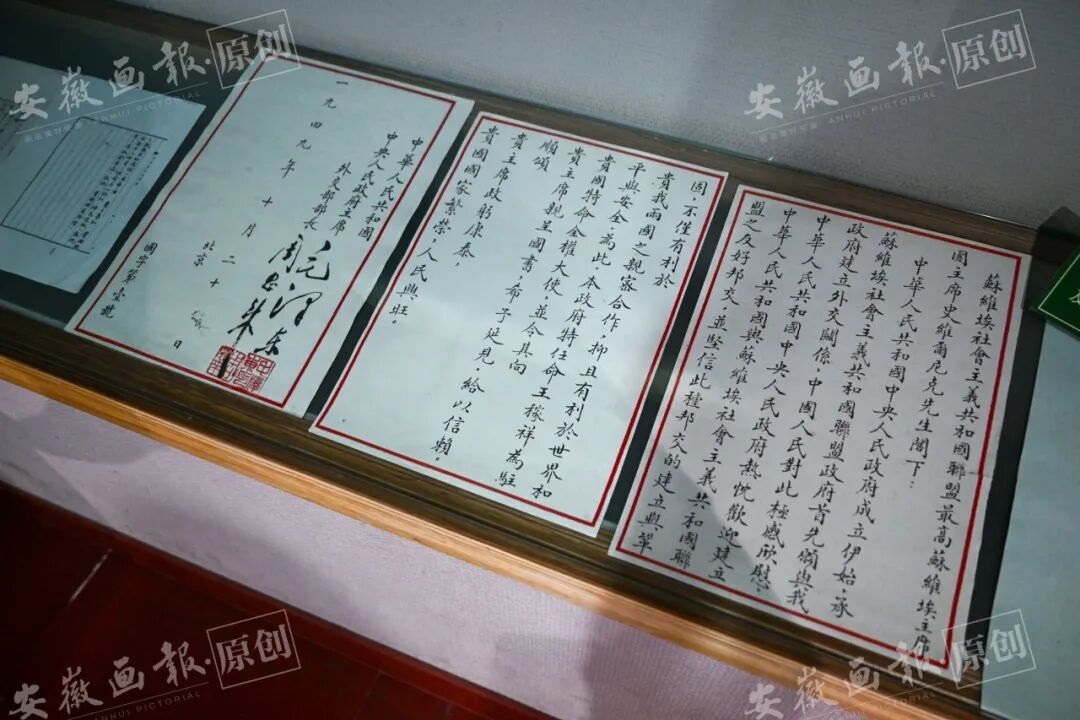 蘇維埃社會主義共和國聯盟最高蘇維埃主席
團主席史維爾尼克先生閣下：
中華人民共和國中央人民政府成立伊始，承
蘇維埃社會主義共和國聯盟政府首先願與我
政府建立外交關係，中國人民對此極感欣慰，
中華人民共和國中央人民政府熱忱歡迎建立
中華人民共和國與蘇維埃社會主義共和國聯
盟之友好邦交，並堅信此種邦交的建立與鞏
固，不僅有利於
貴我兩國之親密合作，抑且有利於世界和
平與安全，為此，本政府特任命王稼祥為駐
貴國特命全權大使，並令其向
貴主席親呈國書，希予延見，給以信賴。
順頌
貴主席政躬康泰，
貴國國家繁榮，人民興旺。
中華人民共和國
中央人民政府主席 毛澤東
外交部部長 周恩來
一九四九年十月二十日
北京
國字第壹號
安徽画报·原创
ANHUI PICTORIAL
安徽画报·原创
ANHUI PICTORIAL
安徽画报·原创
ANHUI PICTORIAL
安徽画报·原创